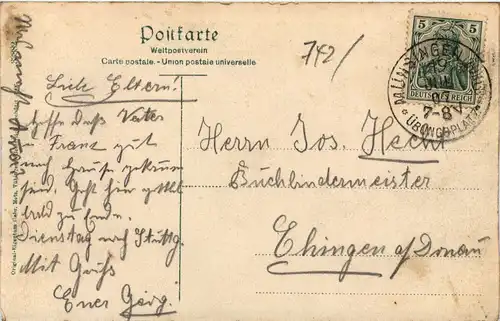 Postkarte
Weltpostverein
Carte postale. - Union postale universelle
742/
5 5
DEUTSCHES REICH
MÜNSINGEN
7-8V
* ÜBUNGSPLATZ *
Liebe Eltern!
Hoffe daß Vater
u. Franz gut
nach Hause gekom
Geht hier
bald zu Ende.
Dienstag nach Stuttg.
Mit Gruß
Euer Georg
Herrn Jos. Hecht
Buchbindermeister
Ehingen a/Donau